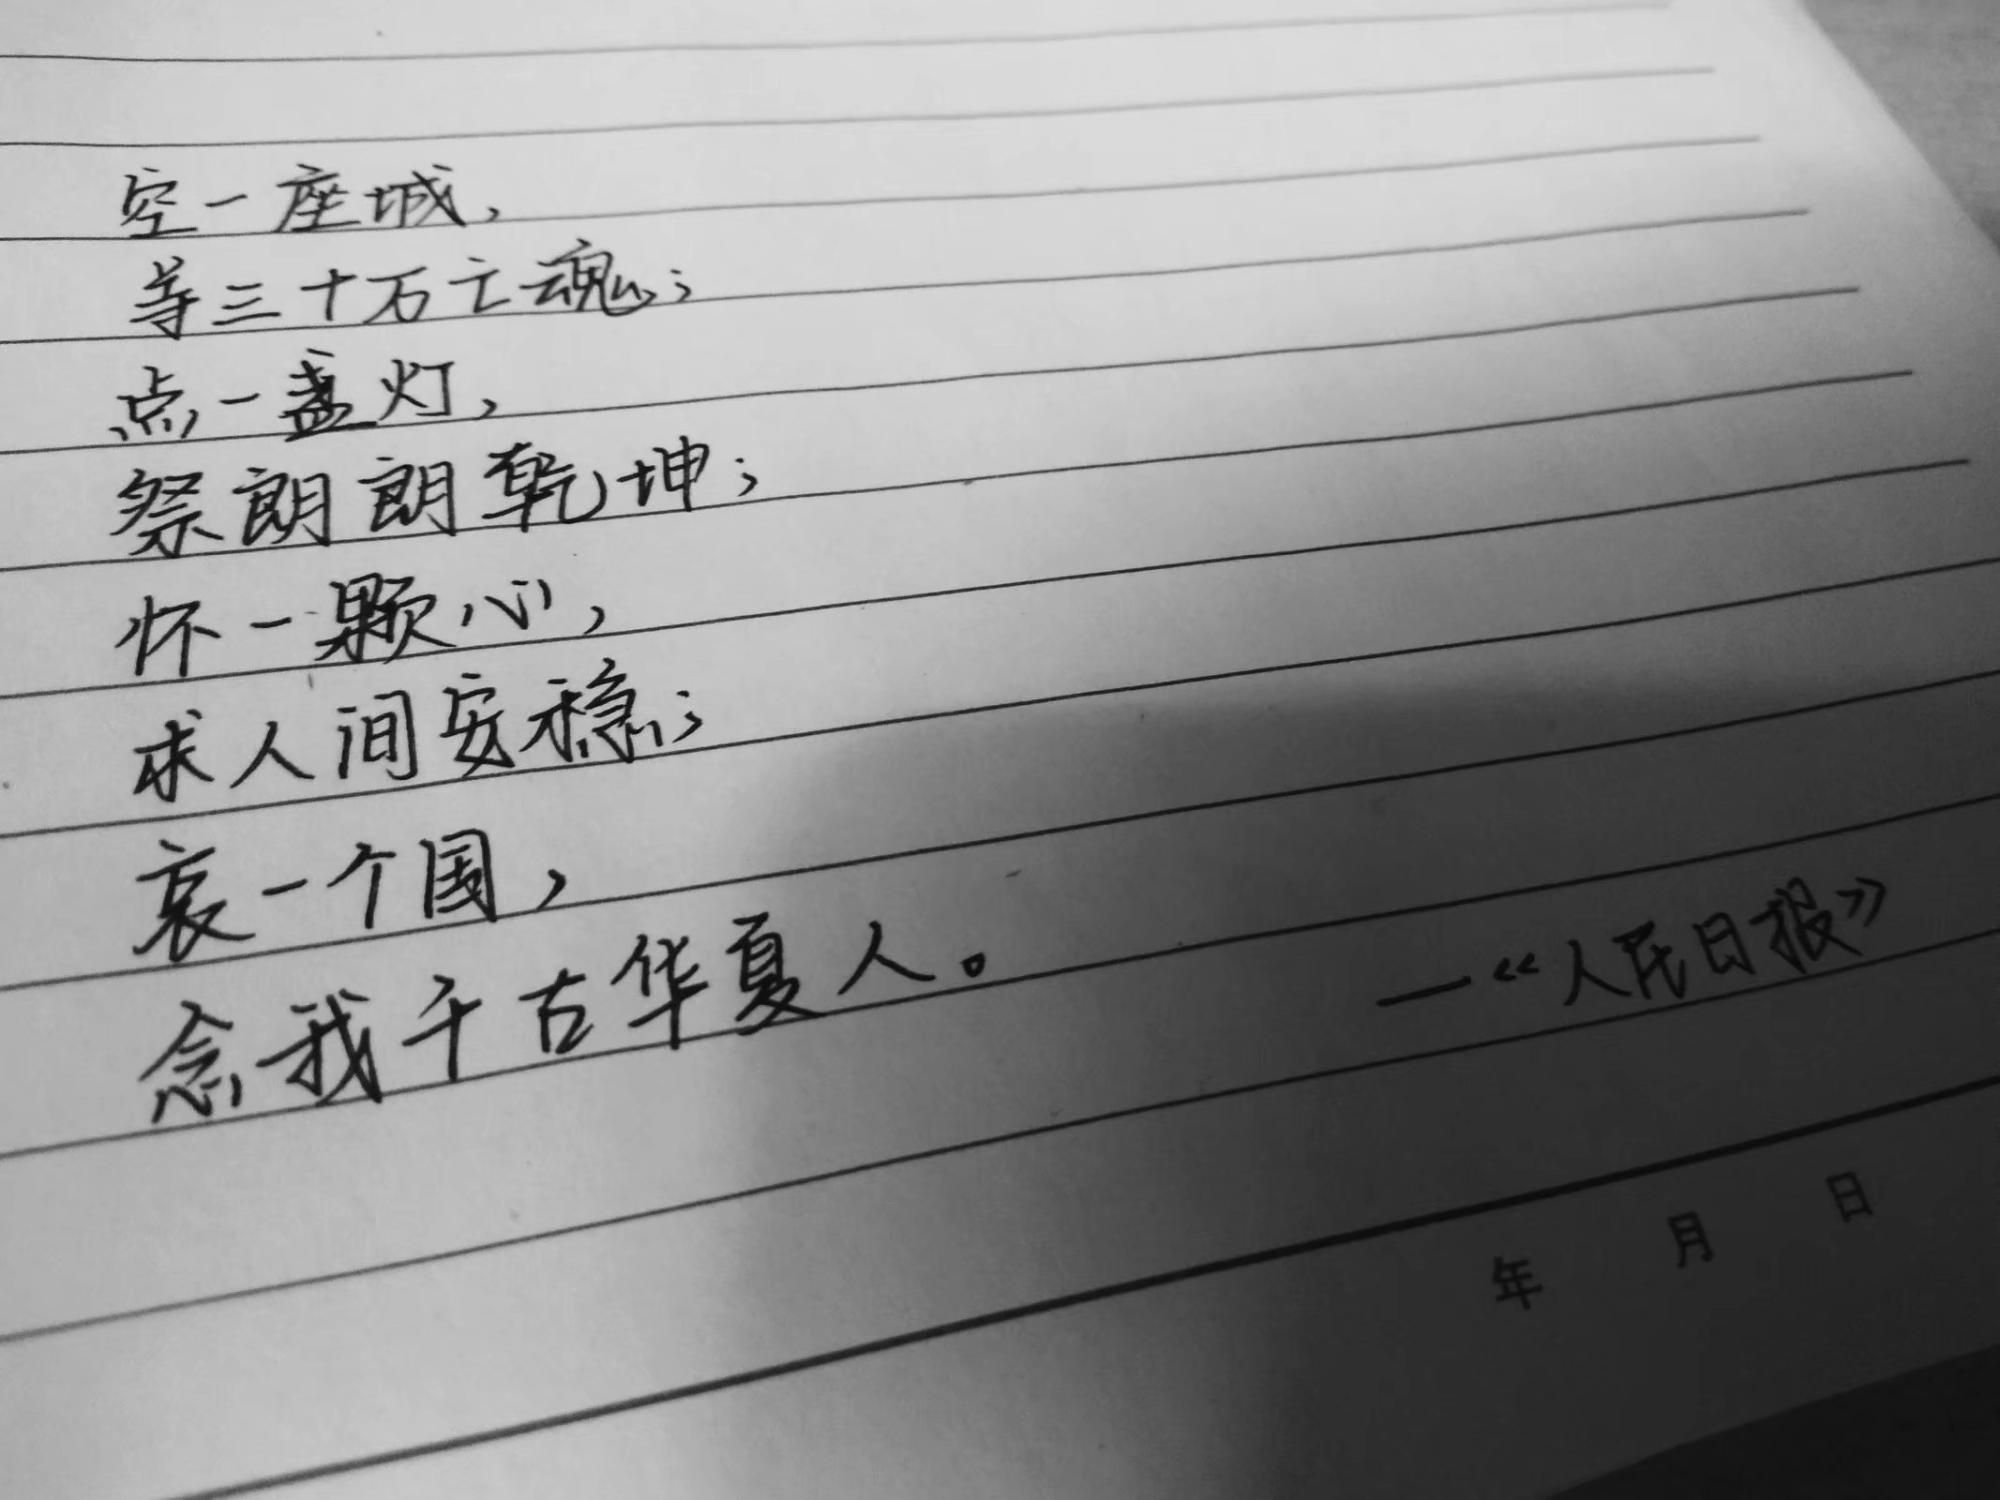 空一座城，
等三十万亡魂；
点一盏灯，
祭朗朗乾坤；
怀一颗心，
求人间安稳；
哀一个国，
念我千古华夏人。
—《人民日报》
年 月 日